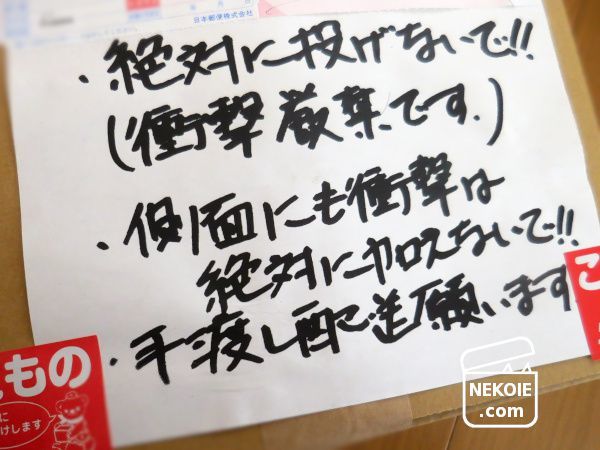 日本郵便株式会社
・絶対に投げないで!!
(衝撃厳禁です。)
・側面にも衝撃は
絶対に加えないで!!
・手渡し配送願います
こ
もの
に
けします
NEKOIE
.com